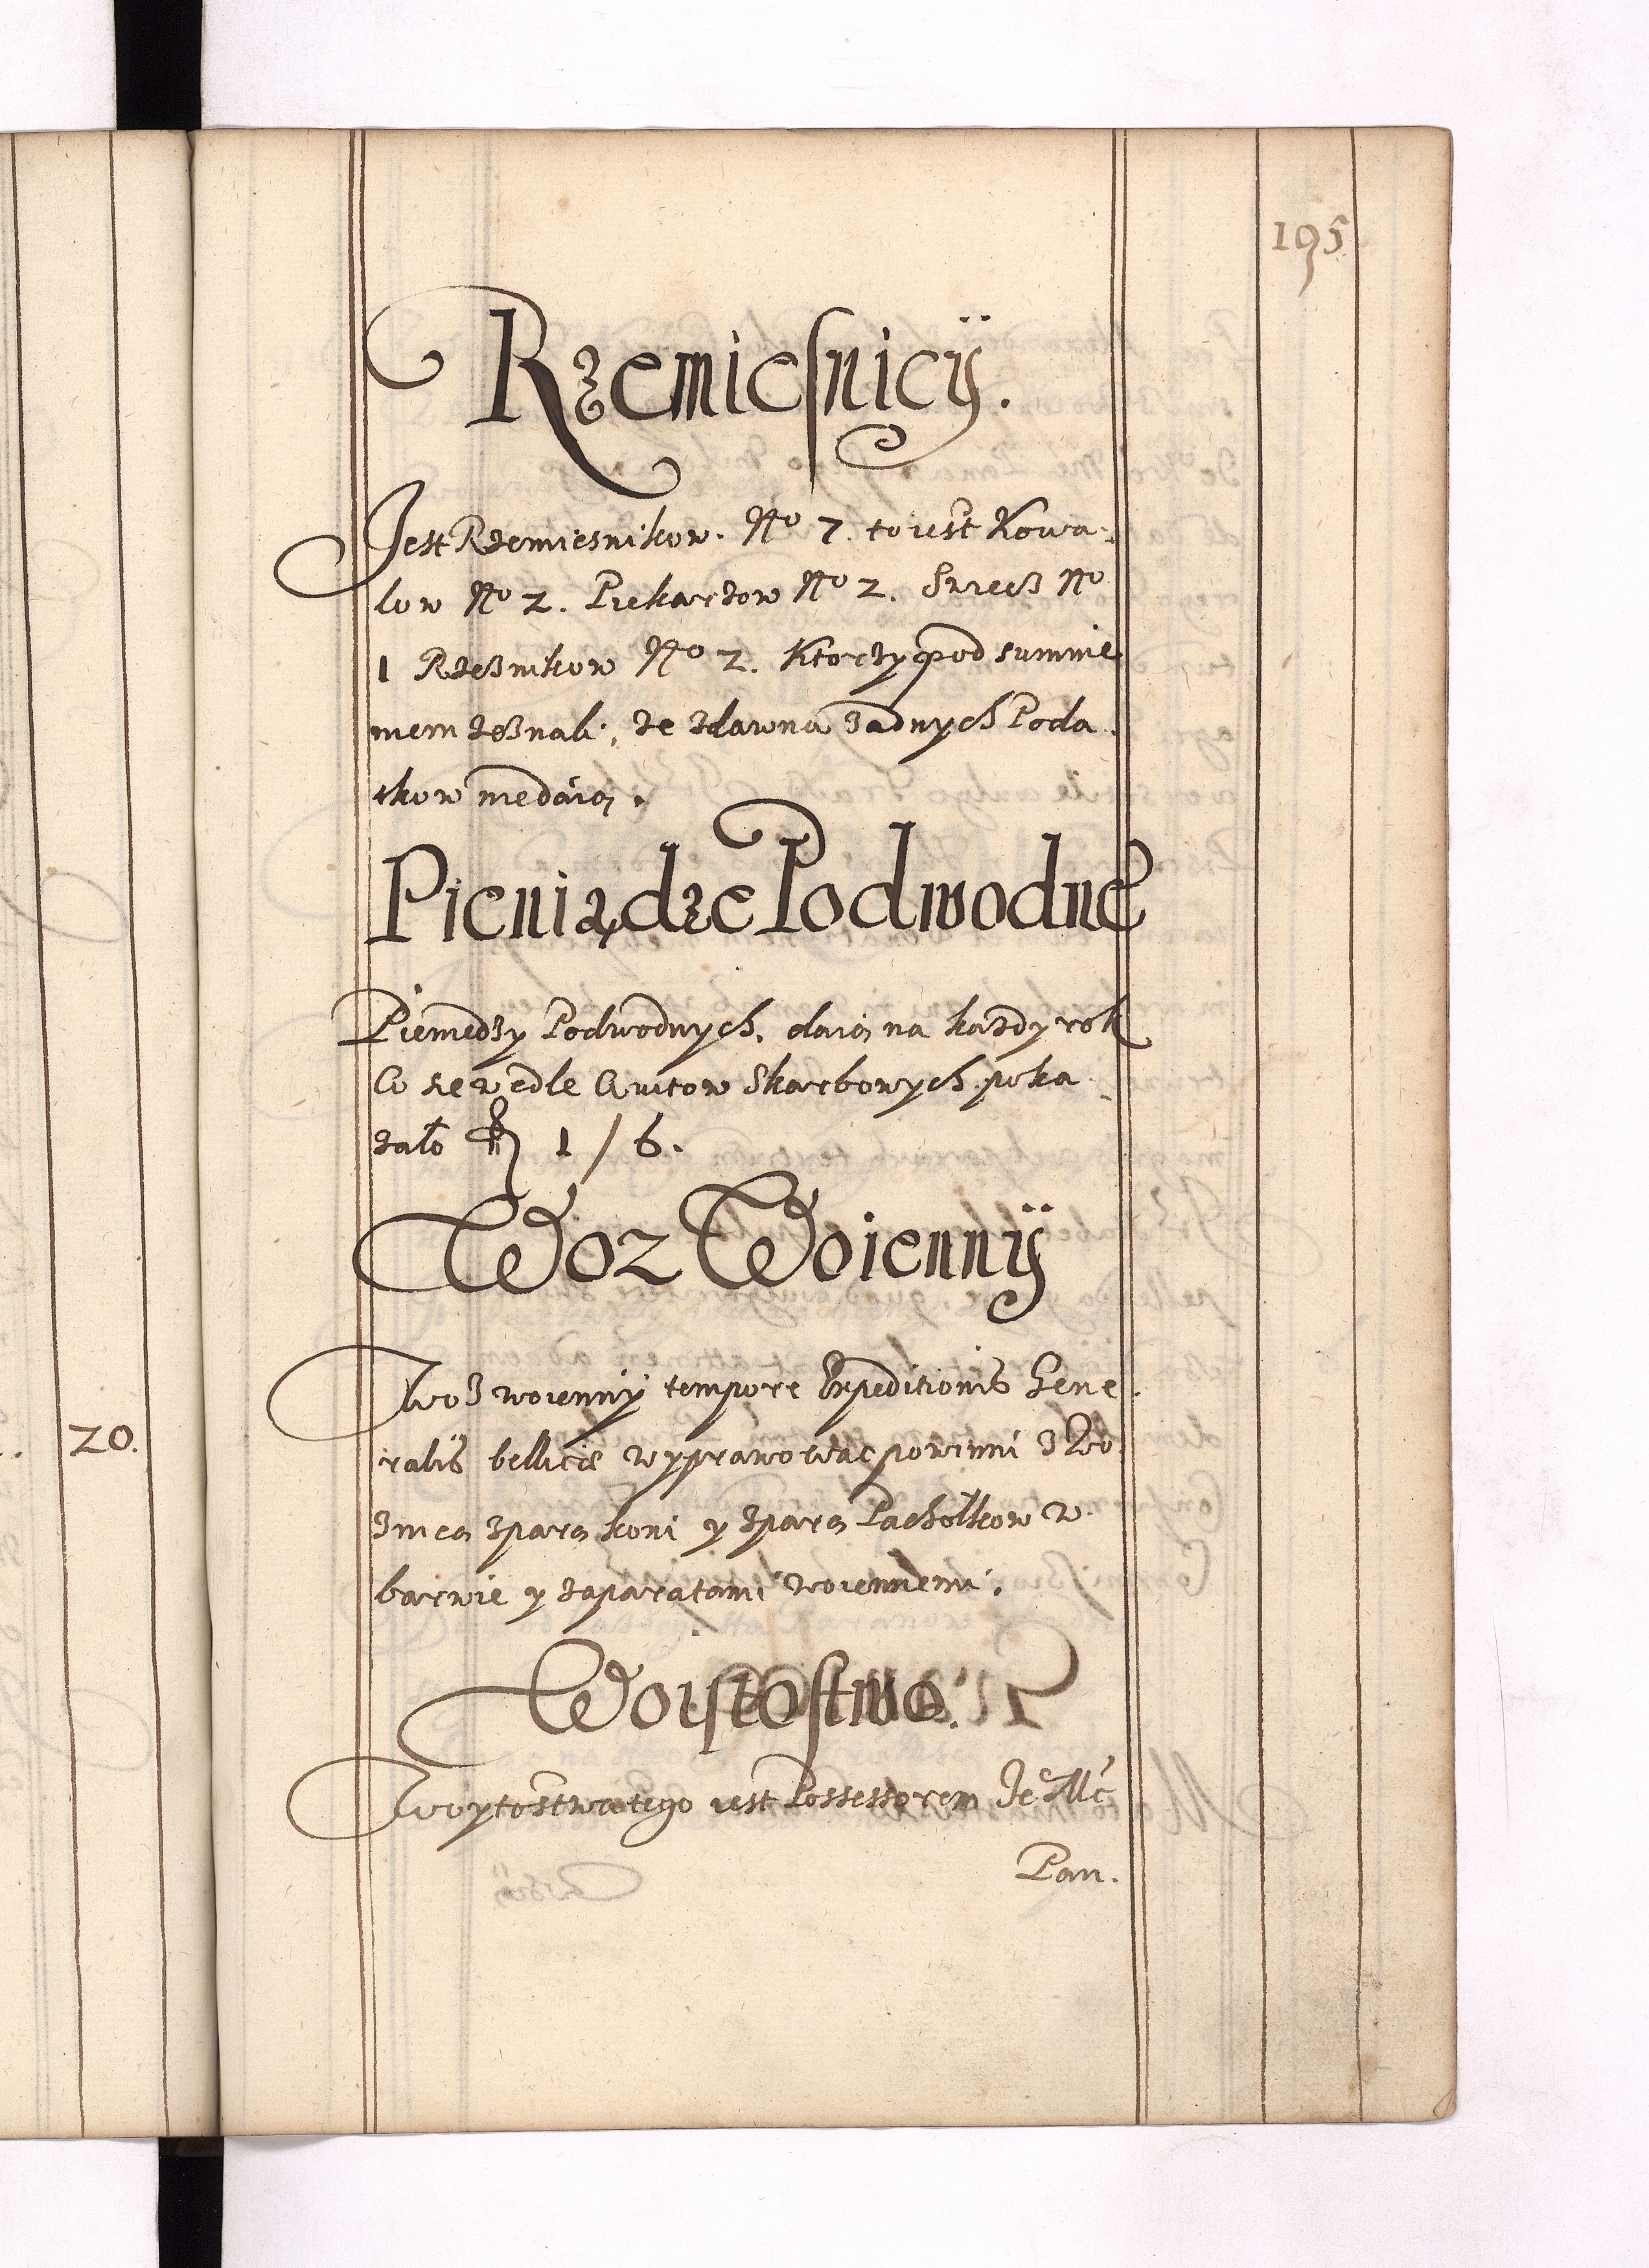 195
Rzemiesnicÿ.
Jest Rzemiesnikow. No 7. to iest Kowa-
low No 2. Piekarzow No 2. Swiecz No
1 Rzesznikow No 2. Ktorzy pod sumnie
niem zesznali, ze zdawna zadnych Poda
tkow niedaią.
Pieniądze Podwodne
Pieniedzy Podwodnych. daią na kazdy rok
Co sie wedle Quitow Skarbowych poka
zało 1/6.
Woz Woiennÿ
Woz woiennÿ tempore Expeditionis Gene
ralis bellicæ wyprawowac powinni z Wo
znicą zparą koni y zparą Pachołkow w
barwie y zaparatami woiennemi.
20.
Woistostwo.
Woytostwa tego iest Possessorem Je Mć
Pan.